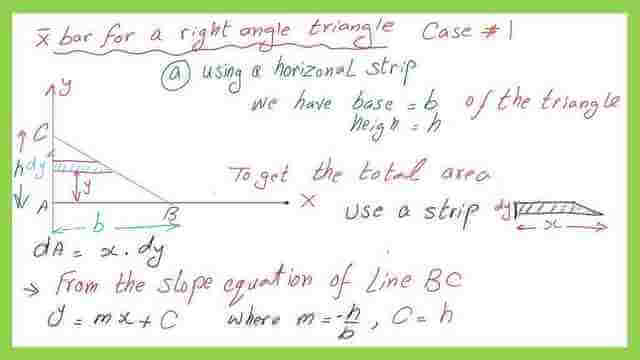 x̄ bar for a right angle triangle Case #1
ⓐ using a horizonal strip
we have base = b of the triangle
heigh = h
y
C
h dy
y
To get the total area
A
B
x
b
use a strip dy
x
dA = x . dy
→ From the slope equation of Line BC
y = mx + C where m = -h/b , C = h